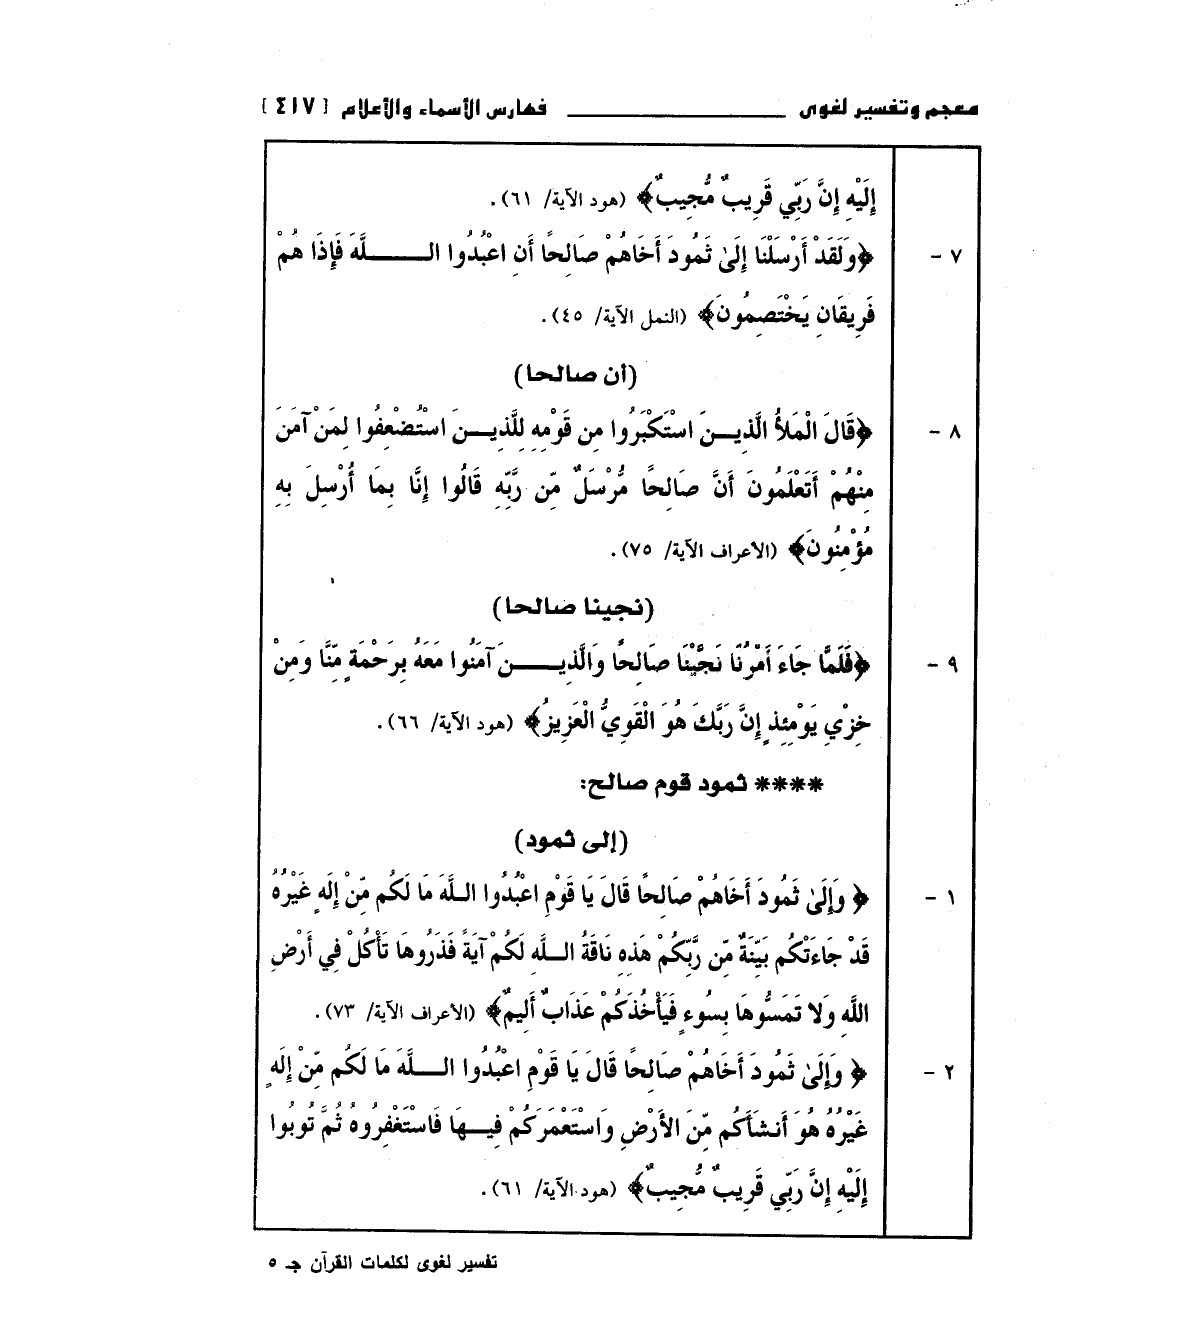 معجم وتفسير لغوى ــــــــــ فهارس الأسماء والأعلام [٤١٧]
إِلَيْهِ إِنَّ رَبِّي قَرِيبٌ مُّجِيبٌ﴾ (هود الآية/ ٦١).
٧ - ﴿وَلَقَدْ أَرْسَلْنَا إِلَىٰ ثَمُودَ أَخَاهُمْ صَالِحًا أَنِ اعْبُدُوا اللَّهَ فَإِذَا هُمْ
فَرِيقَانِ يَخْتَصِمُونَ﴾ (النمل الآية/ ٤٥).
(أن صالحا)
٨ - ﴿قَالَ الْمَلأُ الَّذِينَ اسْتَكْبَرُوا مِن قَوْمِهِ لِلَّذِينَ اسْتُضْعِفُوا لِمَنْ آمَنَ
مِنْهُمْ أَتَعْلَمُونَ أَنَّ صَالِحًا مُّرْسَلٌ مِّن رَّبِّهِ قَالُوا إِنَّا بِمَا أُرْسِلَ بِهِ
مُؤْمِنُونَ﴾ (الأعراف الآية/ ٧٥).
(نجينا صالحا)
٩ - ﴿فَلَمَّا جَاءَ أَمْرُنَا نَجَّيْنَا صَالِحًا وَالَّذِينَ آمَنُوا مَعَهُ بِرَحْمَةٍ مِّنَّا وَمِنْ
خِزْيِ يَوْمِئِذٍ إِنَّ رَبَّكَ هُوَ الْقَوِيُّ الْعَزِيزُ﴾ (هود الآية/ ٦٦).
**** ثمود قوم صالح:
(إلى ثمود)
١ - ﴿وَإِلَىٰ ثَمُودَ أَخَاهُمْ صَالِحًا قَالَ يَا قَوْمِ اعْبُدُوا اللَّهَ مَا لَكُم مِّنْ إِلَهٍ غَيْرُهُ
قَدْ جَاءَتْكُم بَيِّنَةٌ مِّن رَّبِّكُمْ هَذِهِ نَاقَةُ اللَّهِ لَكُمْ آيَةً فَذَرُوهَا تَأْكُلْ فِي أَرْضِ
اللَّهِ وَلا تَمَسُّوهَا بِسُوءٍ فَيَأْخُذَكُمْ عَذَابٌ أَلِيمٌ﴾ (الأعراف الآية/ ٧٣).
٢ - ﴿وَإِلَىٰ ثَمُودَ أَخَاهُمْ صَالِحًا قَالَ يَا قَوْمِ اعْبُدُوا اللَّهَ مَا لَكُم مِّنْ إِلَهٍ
غَيْرُهُ هُوَ أَنشَأَكُم مِّنَ الأَرْضِ وَاسْتَعْمَرَكُمْ فِيهَا فَاسْتَغْفِرُوهُ ثُمَّ تُوبُوا
إِلَيْهِ إِنَّ رَبِّي قَرِيبٌ مُّجِيبٌ﴾ (هود الآية/ ٦١).
تفسير لغوى لكلمات القرآن جـ ٥